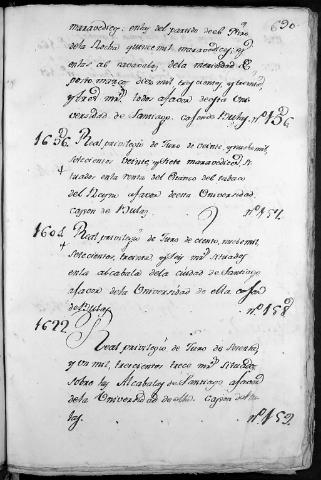 690
maravedises; en los del partido de el Prio
de la Rocha quince mil maravedises; y
en las alcavalas de la meridad de
Porto marco, diez mil trescientos, y treinta
y tres mrs. todos a favor de esta Uni-
versidad de Santiago. Cajon de Bulas. nº 156
1636. Real privilegio de Juro de veinte, y nuebe mil
setecientos veinte, y siete maravedises, si-
tuados en la renta del Estanco del tabaco
del Reyno a favor de esta Universidad.
Cajon de Bulas. nº 157.
1604 Real privilegio de Juro de ciento, nuebe mil,
setecientos, treinta y seis mrs. situados
en la alcabala de la ciudad de Santiago
a favor de la Universidad de ella cajon
de Bulas. nº 158
1622 Real privilegio de Juro de sesenta,
y un mil, trecientos trece mrs. situados
sobre las Alcabalas de Santiago a favor
de la Universidad de ella. Cajon de Bu-
las. nº 159.